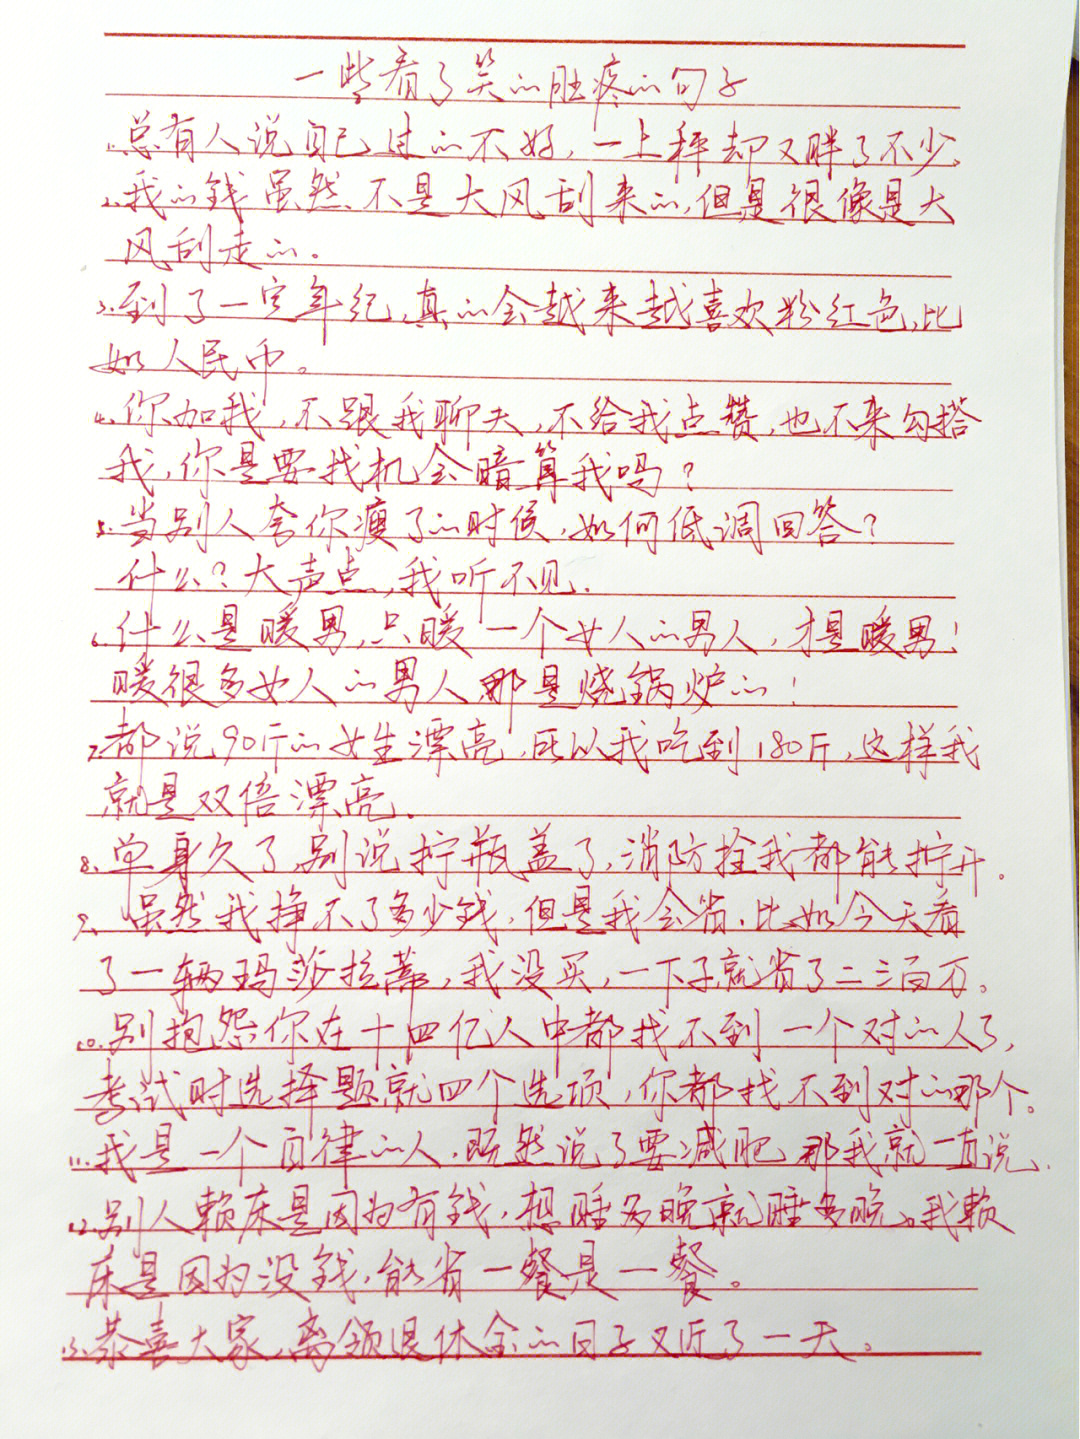 一些看了笑的肚疼的句子
1.总有人说自己过的不好,一上秤却又胖了不少.
2.我的钱虽然不是大风刮来的,但是很像是大
风刮走的。
3.到了一定年纪,真的会越来越喜欢粉红色,比
如人民币。
4.你加我,不跟我聊天,不给我点赞,也不来勾搭
我,你是要找机会暗算我吗?
5.当别人夸你瘦了的时候,如何低调回答?
什么?大声点,我听不见.
6.什么是暖男,只暖一个女人的男人,才是暖男!
暖很多女人的男人那是烧锅炉的!
7.都说90斤的女生漂亮,所以我吃到180斤,这样我
就是双倍漂亮.
8.单身久了,别说拧瓶盖了,消防拴我都能拧开。
9、虽然我挣不了多少钱,但是我会省.比如今天看
了一辆玛莎拉蒂,我没买,一下子就省了二三百万。
10.别抱怨你在十四亿人中都找不到一个对的人了,
考试时选择题就四个选项,你都找不到对的那个。
11.我是一个自律的人,既然说了要减肥,那我就一直说.
12.别人赖床是因为有钱,想睡多晚就睡多晚,我赖
床是因为没钱,能省一餐是一餐。
13.恭喜大家,离领退休金的日子又近了一天。